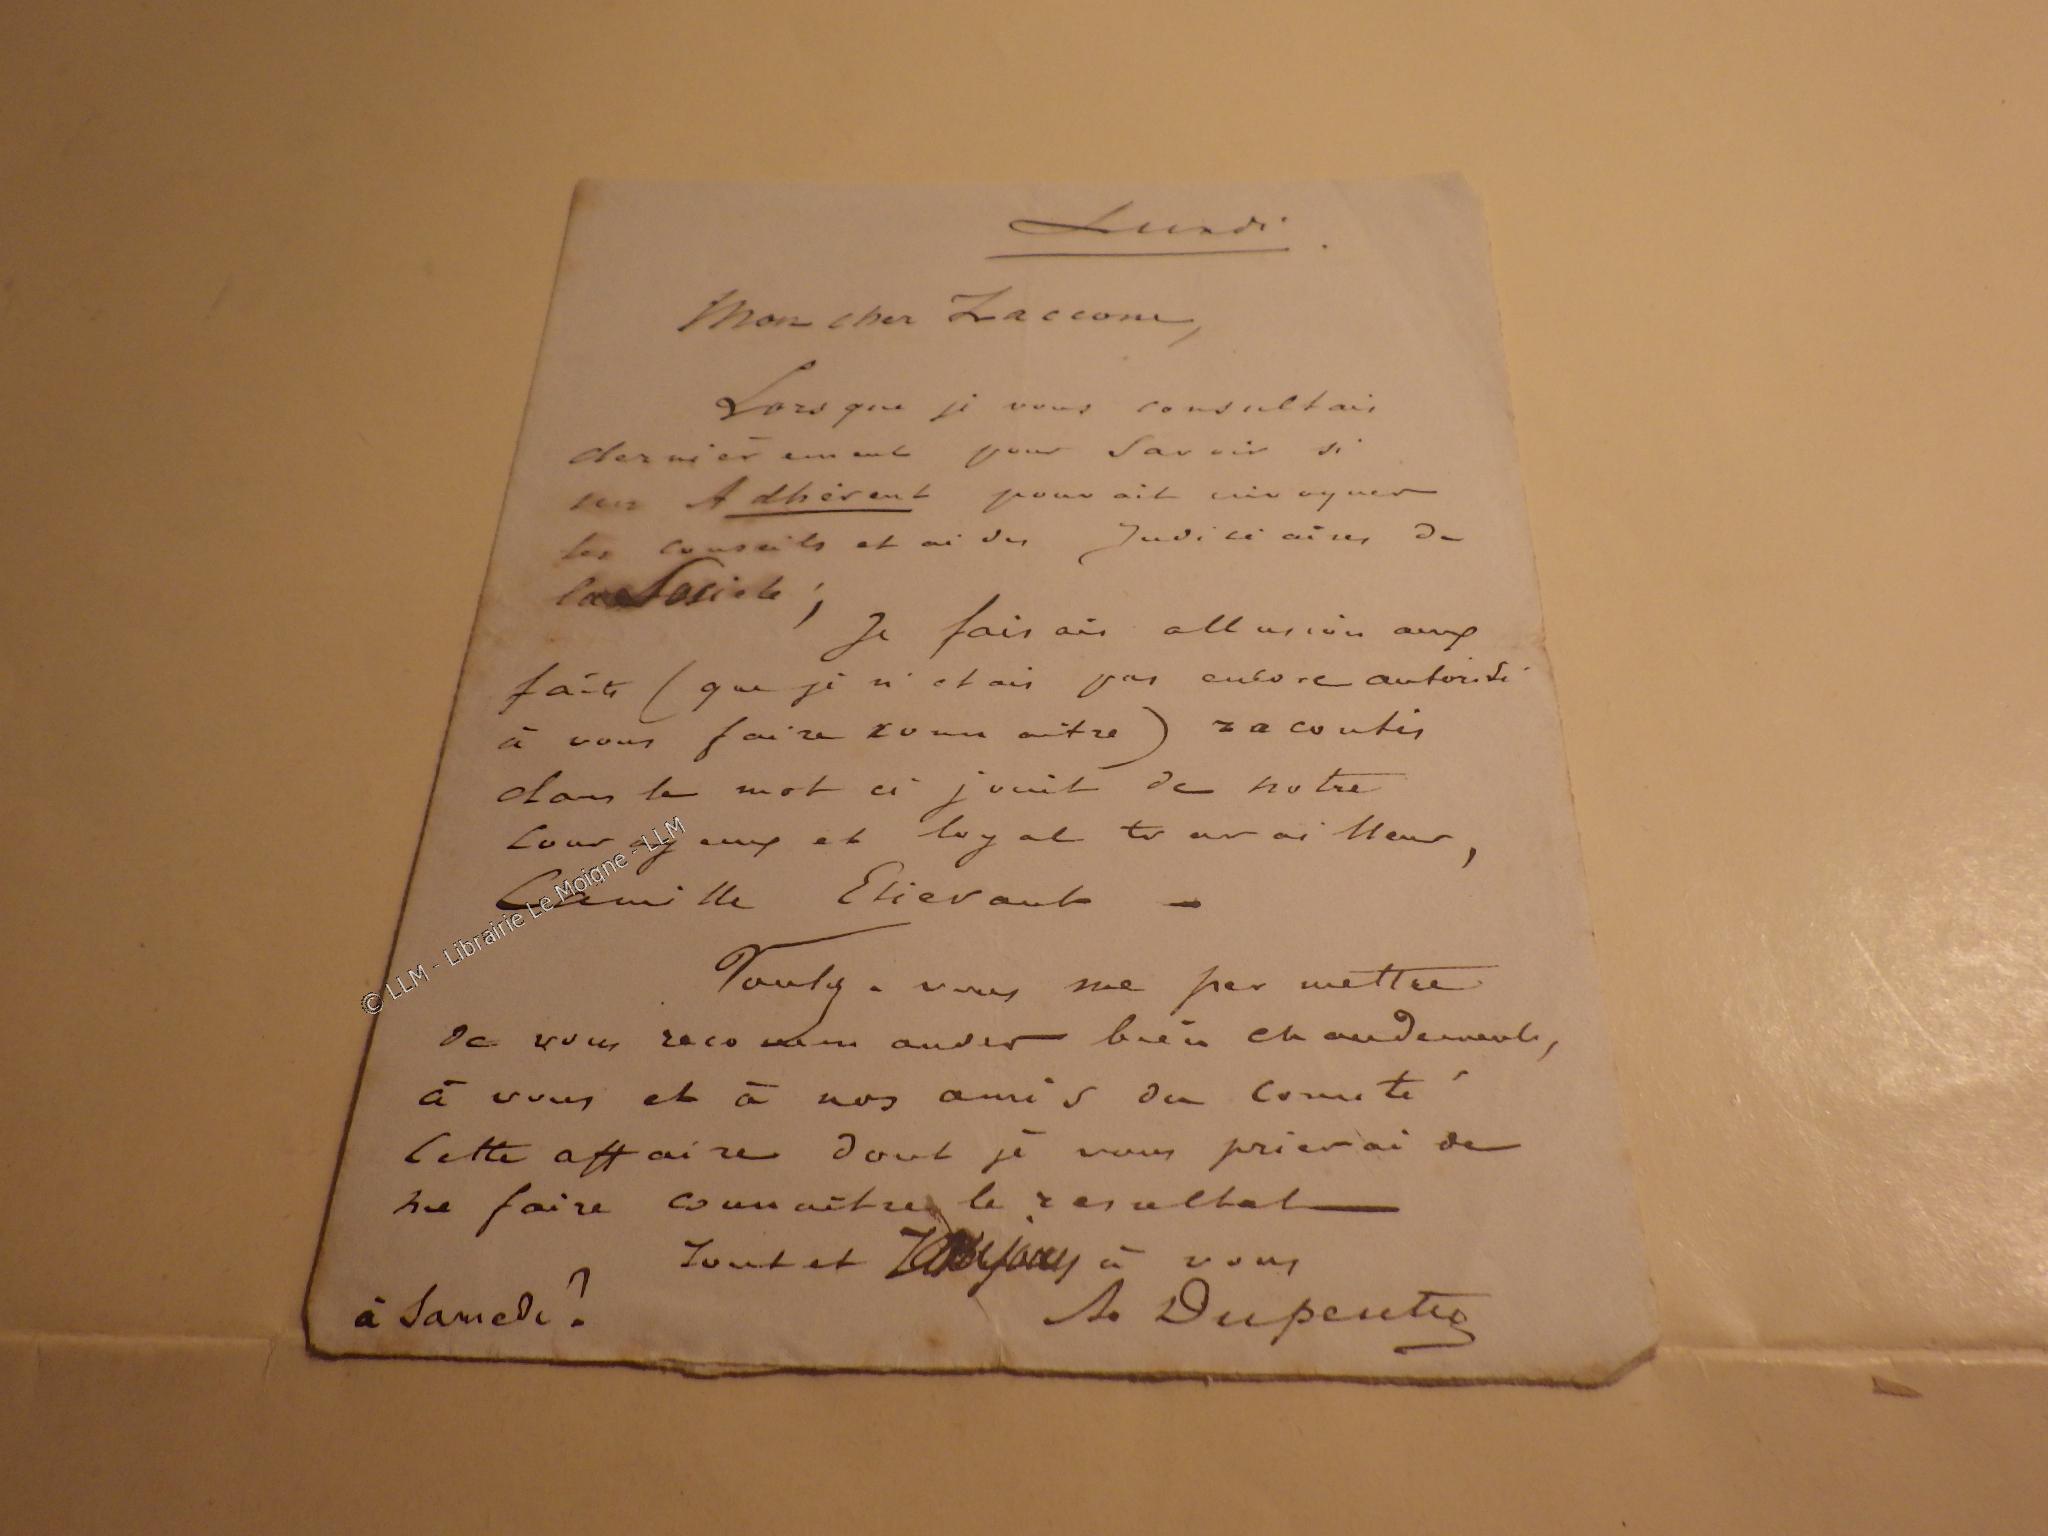 Lundi.
Mon cher Zaccone,
Lorsque je vous consultais
dernièrement pour savoir si
un Adhérent pouvait invoquer
les conseils et aides Judiciaires de
la Société,
Je faisais allusion aux
faits (que je n'etais pas encore autorisé
à vous faire connaitre) racontés
dans le mot ci joint de notre
courageux et loyal travailleur,
Camille Etievant -
Voulez-vous me permettre
de vous recommander bien chaudement,
à vous et à nos amis du comité
Cette affaire dont je vous prierai de
me faire connaitre le resultat
Tout et Toujours à vous
à Samedi?
A. Dupeuty
© LLM - Librairie Le Moigne - LLM